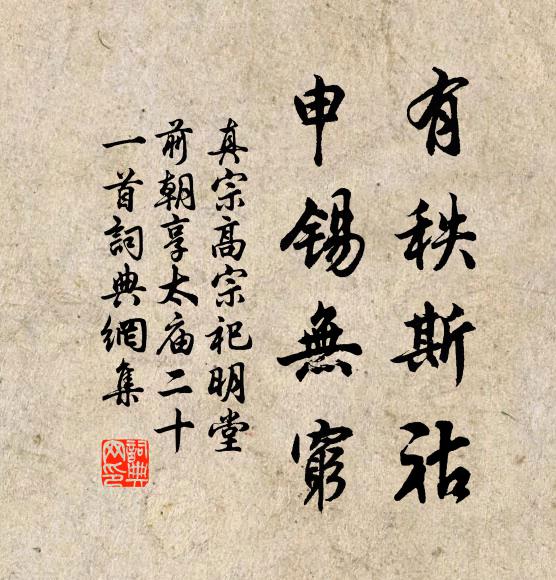 有秩斯祜
申锡無窮
真宗高宗祀明堂
前朝享太庙二十
一首詞典網集
詞典網印